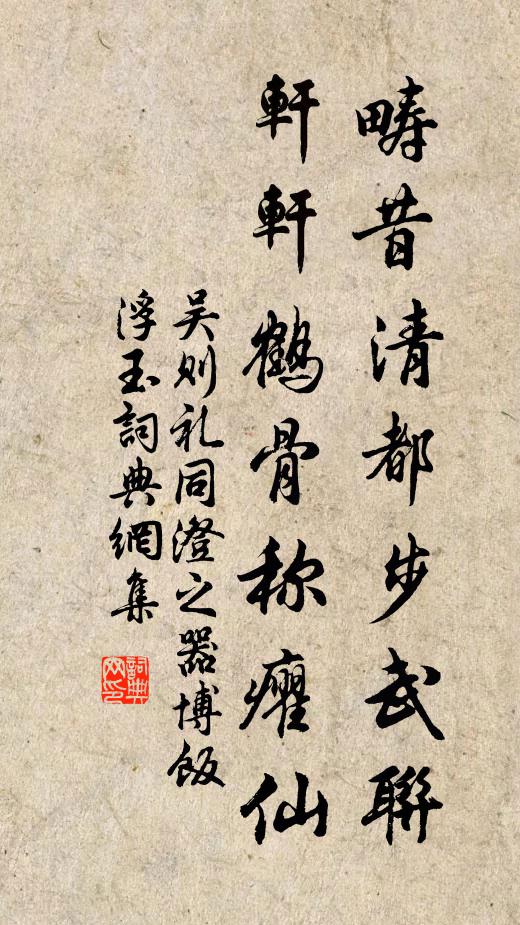 疇昔清都步武聯
軒軒鶴骨称癯仙
吴则礼同澄之器博飯
浮玉詞典網集
詞典网印